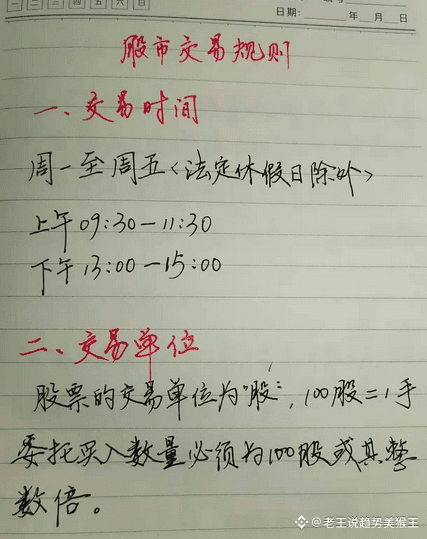 一 二 三 四 五 六 日
日期: 年 月 日
股市交易规则
一、交易时间
周一至周五<法定休假日除外>
上午09:30—11:30
下午13:00—15:00
二、交易单位
股票的交易单位为"股",100股=1手
委托买入数量必须为100股或其整
数倍。
@老王说趋势美猴王